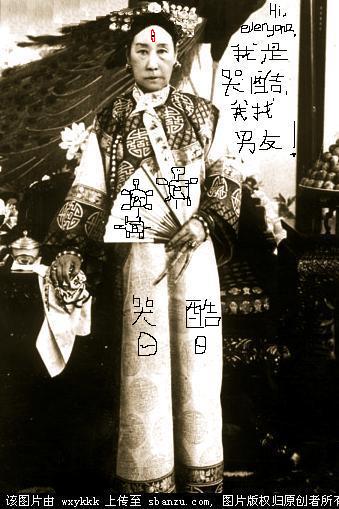 Hi,
everyone,
我是
哭酷,
我找
男友!
哭 酷
日 日
该图片由 wxykkk 上传至 sbanzu.com, 图片版权归原创者所有